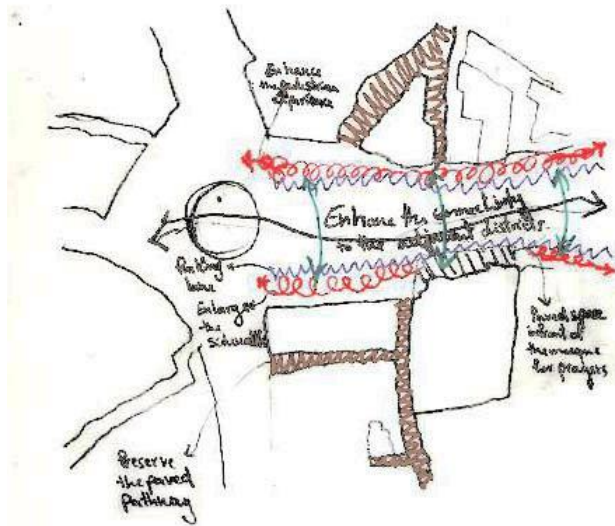 Enhance
the pedestrian
experience
Enhance the connectivity
to the adjacent districts
Parking
lane
Enlarge
the
sidewalk
Paved space
infront of
the mosque
for prayers
Preserve
the paved
pathway